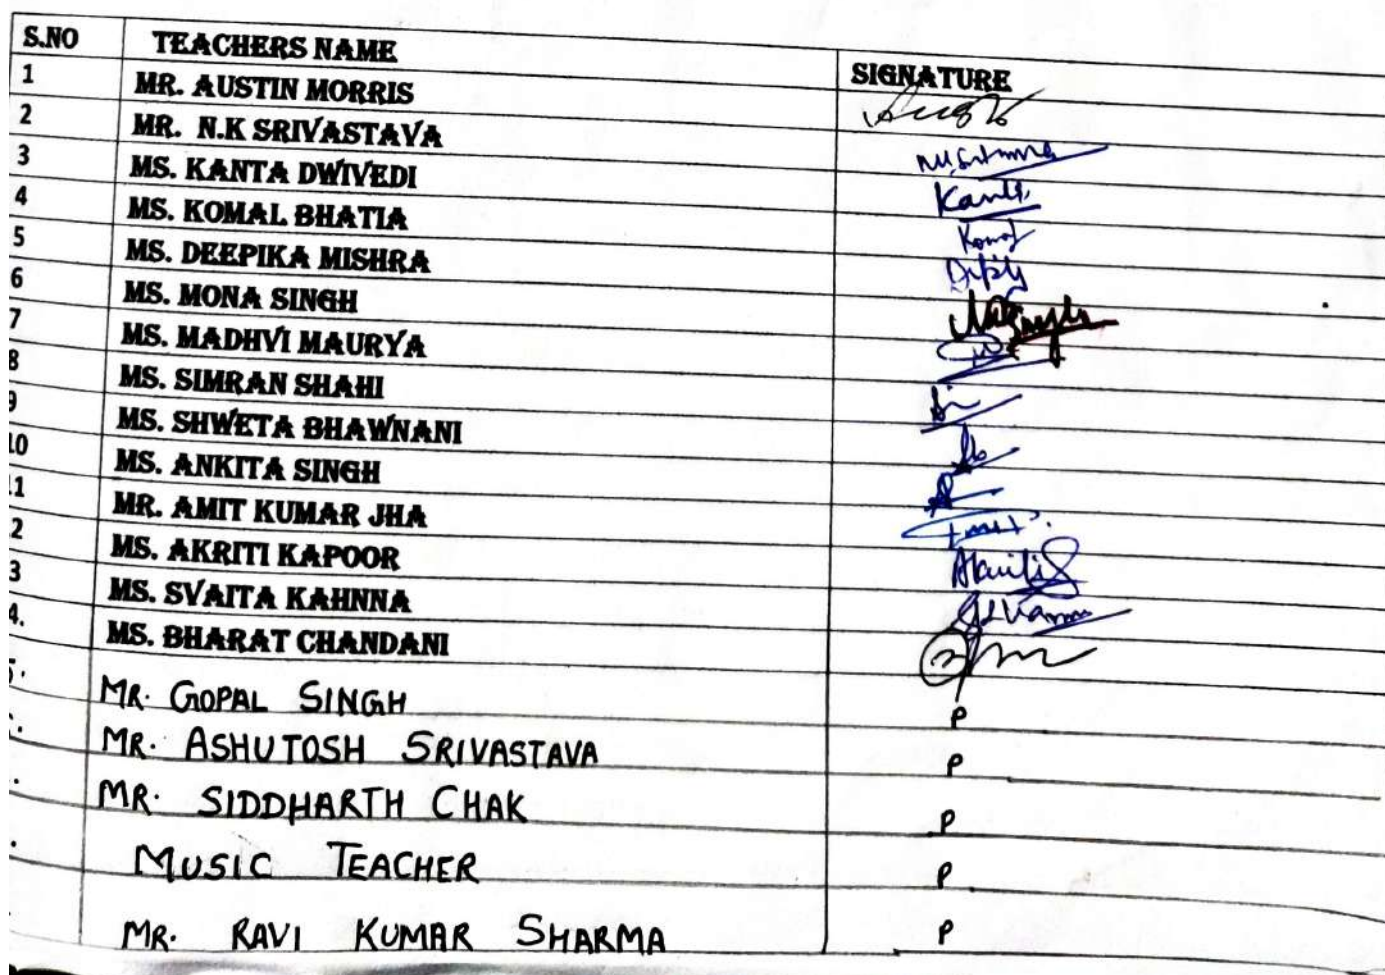 S.NO TEACHERS NAME SIGNATURE
1 MR. AUSTIN MORRIS
2 MR. N.K SRIVASTAVA
3 MS. KANTA DWIVEDI
4 MS. KOMAL BHATIA Komal
5 MS. DEEPIKA MISHRA
6 MS. MONA SINGH
7 MS. MADHVI MAURYA
8 MS. SIMRAN SHAHI
9 MS. SHWETA BHAWNANI
10 MS. ANKITA SINGH
11 MR. AMIT KUMAR JHA
2 MS. AKRITI KAPOOR Akriti
3 MS. SVAITA KAHNNA
4. MS. BHARAT CHANDANI
5. MR. GOPAL SINGH P
MR. ASHUTOSH SRIVASTAVA P
MR. SIDDHARTH CHAK P
MUSIC TEACHER P
MR. RAVI KUMAR SHARMA P